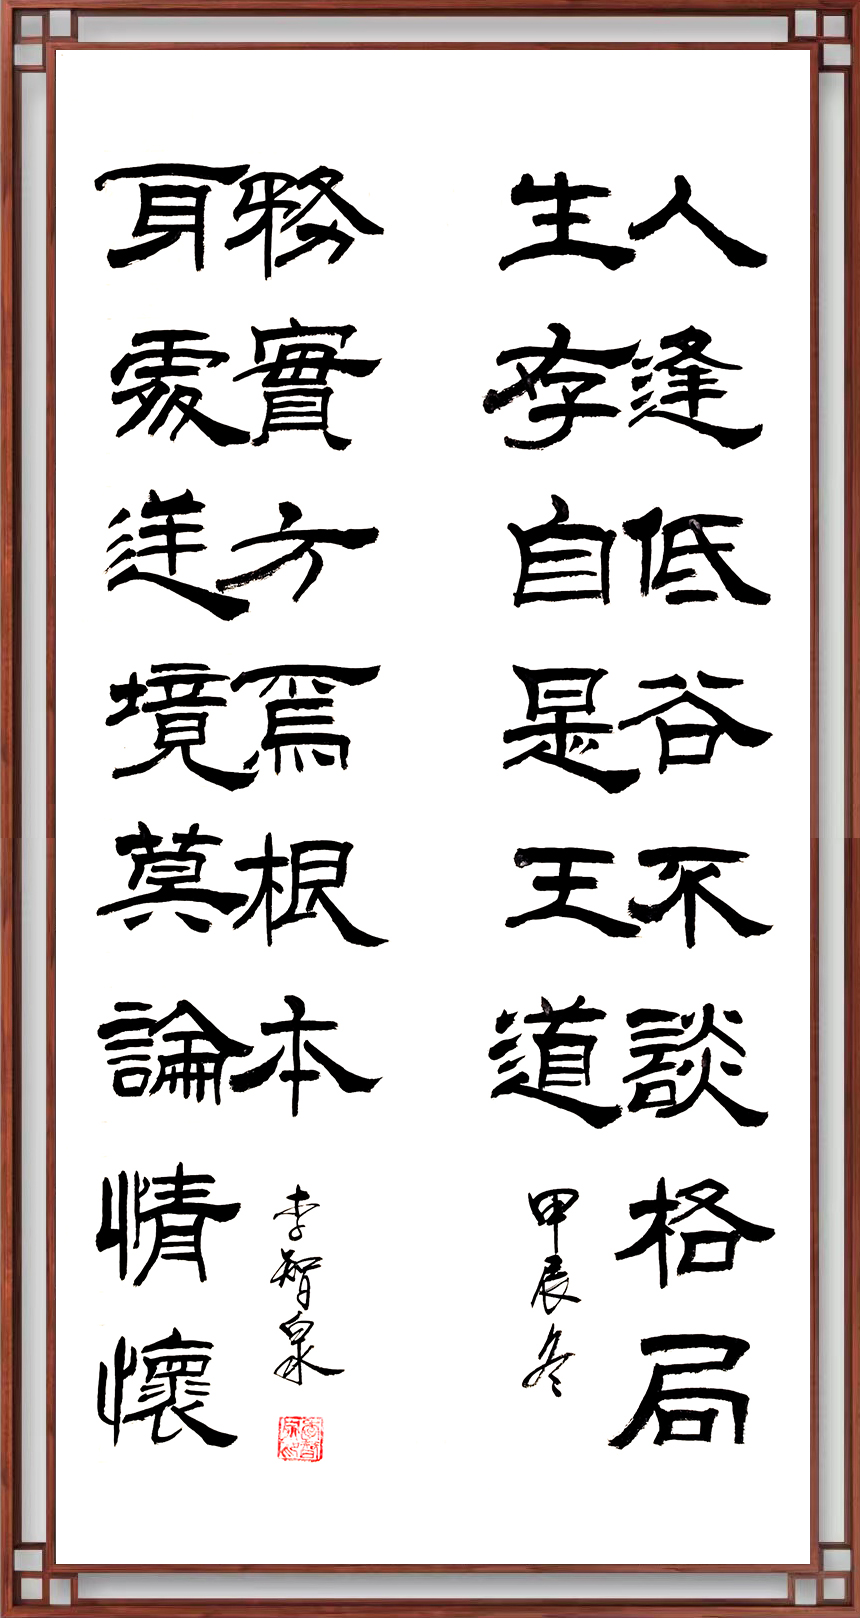 人逢低谷不談格局
生存自是王道
甲辰冬
身處逆境莫論情懷
務實方爲根本
李智泉